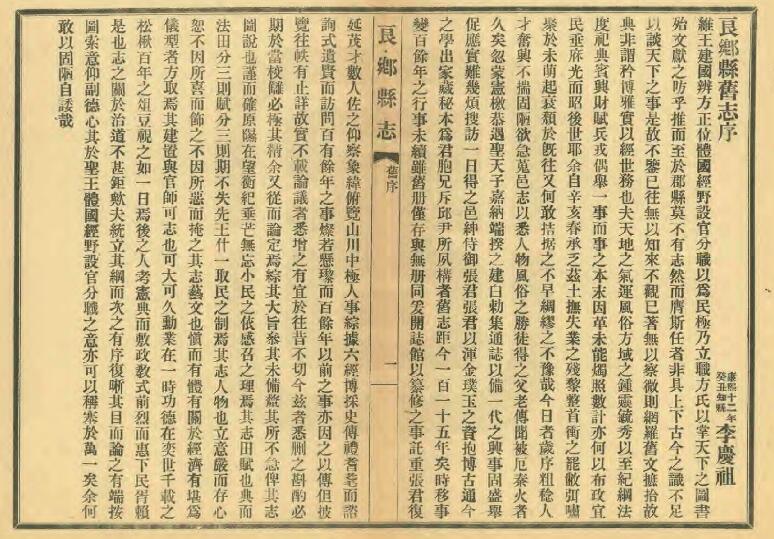 良鄉縣舊志序
康熙十二年
癸丑知縣
李慶祖
維王建國辨方正位體國經野設官分職以爲民極乃立職方氏以掌天下之圖書
殆文獻之昉乎推而至於郡縣莫不有志然而膺斯任者非具上下古今之識不足
以談天下之事是故不鑒已往無以知來不觀已著無以察微則網羅舊文摭拾故
典非謂矜博雅實以經世務也夫天地之氣運風俗方域之鍾靈毓秀以至紀綱法
度祀典賓興財賦兵戎偶舉一事而事之本末因革未能燭照數計亦何以布政宜
民垂庥光而昭後世耶余自辛亥春承乏茲土撫失業之殘黎整首衝之罷敝弭嘯
聚於未萌起衰頹於旣往又何敢拮据之不早綢繆之不豫哉今日者歲序粗稔人
才奮興不揣固陋欲急蒐邑志以悉人物風俗之勝徒得之父老傳聞被厄秦火者
久矣忽蒙憲檄恭遇聖天子嘉納端揆之建白勅集通誌以備一代之典事固盛舉
促應實難幾煩搜訪一日得之邑紳侍御張君張君以渾金璞玉之資抱博古通今
之學出家藏秘本爲君胞兄斥邱尹所夙構者舊志距今一百一十五年矣時移事
變百餘年之行事未續雖舊册僅存與無册同爰開誌館以纂修之事託重張君復
良鄉縣志
舊序
一
延茂才數人佐之仰察象緯俯覽山川中極人事綜據六經博採史傳禮耆耄而諮
詢式遺賢而訪問百有餘年之事燦若懸瓈而百餘年以前之事亦因之以傳但披
覽往帙有止詳故實不載論議者悉增之有宜於往昔不切今玆者悉删之斟酌必
期於當棱讎必極其精余又從而論定焉綜其大旨參其未備盭其所不急俾其志
圖說也謹而確原隰在望衡紀垂芒無忘小民之依感召之理焉其志田賦也典而
法田分三則賦分三則期不失先王什一取民之制焉其志人物也立意嚴而存心
恕不因所喜而飾之不因所惡而掩之其志藝文也愼而有體有關於經濟有堪爲
儀型者方取焉其建置與官師可志也可大可久勳業在一時功德在奕世千載之
松楸百年之俎豆視之如一日焉後之人考憲典而敷政敎式前烈而惠下民胥賴
是也志之關於治道不甚鉅歟夫統立其綱而次之有序復晰其目而論之有端按
圖索意仰副德心其於聖王體國經野設官分職之意亦可以稱寀於萬一矣余何
敢以固陋自諉哉